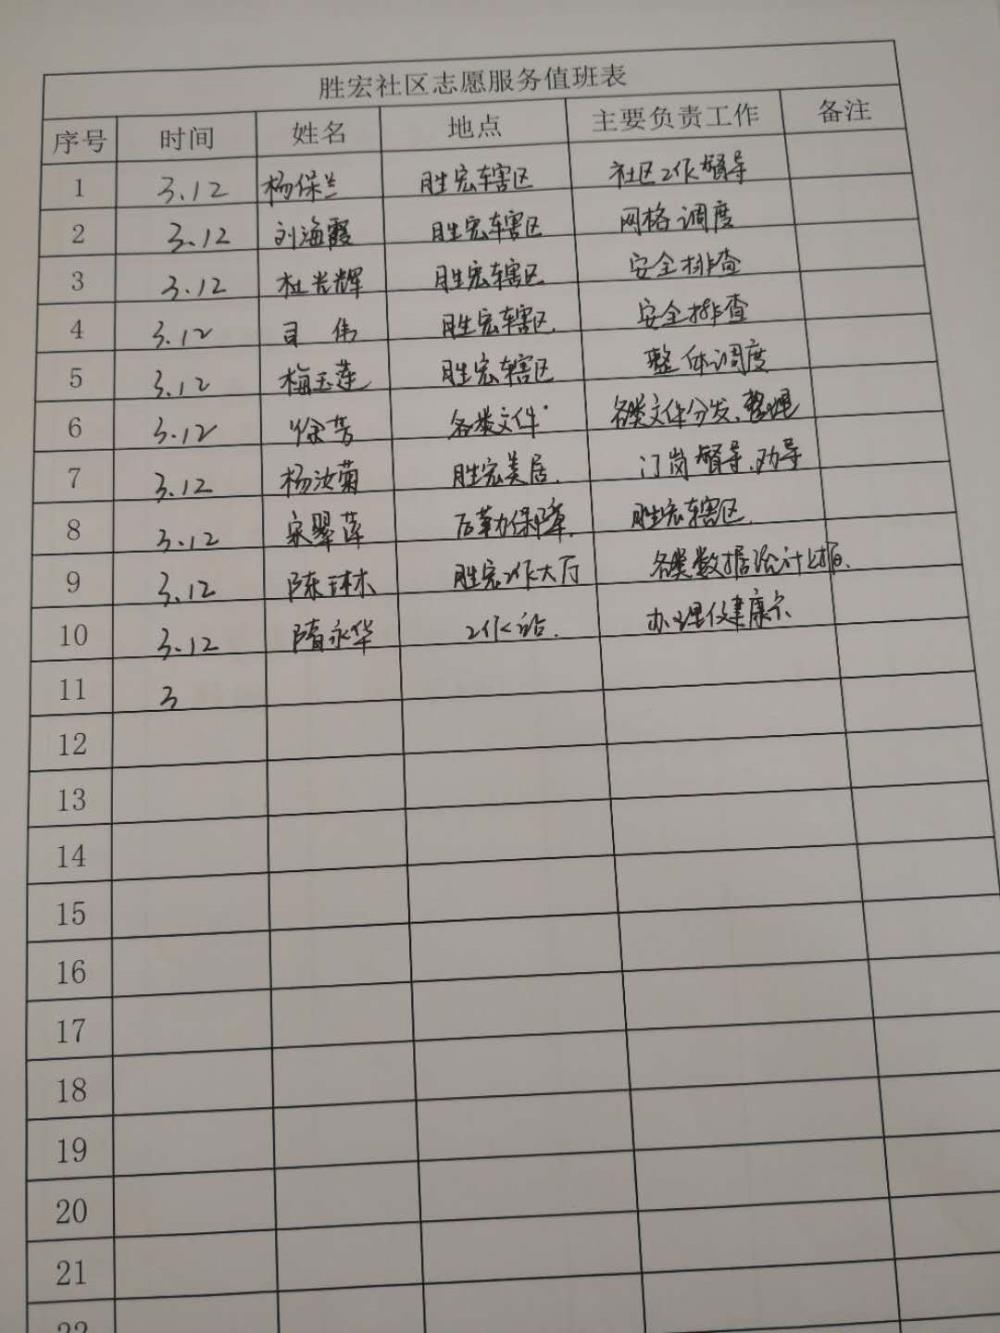 胜宏社区志愿服务值班表
序号 时间 姓名 地点 主要负责工作 备注
1 3.12 杨保兰 胜宏辖区 社区工作督导
2 3.12 刘海霞 胜宏辖区 网格调度
3 3.12 杜光辉 胜宏辖区 安全排查
4 3.12 司伟 胜宏辖区. 安全排查
5 3.12 梅玉莲 胜宏辖区 整体调度
6 3.12 徐芳 各类文件. 各类文件分发、整理
7 3.12 杨汝菊 胜宏美居. 门岗督导、劝导
8 3.12 宋翠萍 后勤保障. 胜宏辖区.
9 3.12 陈琳 胜宏工作大厅 各类数据统计上报.
10 3.12 隋永华 工作站. 办理健康
11 3
12
13
14
15
16
17
18
19
20
21
22